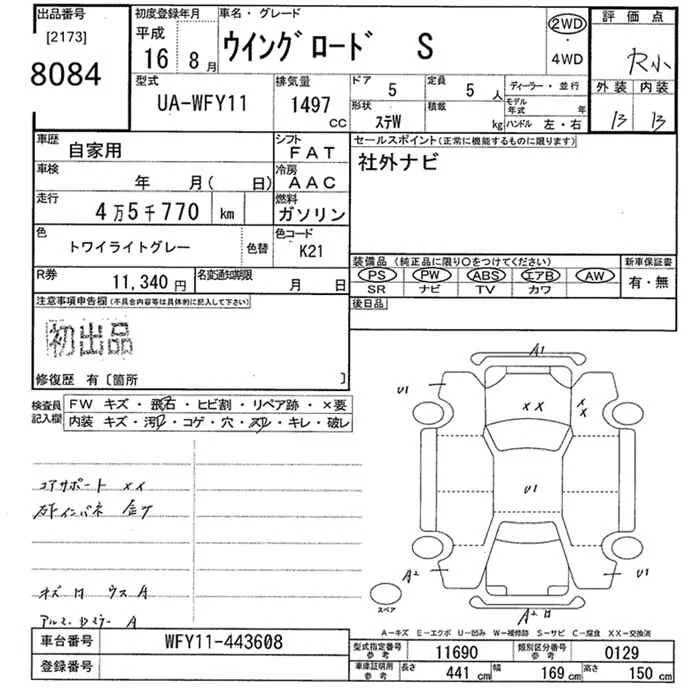 出品番号
[2173]
8084
初度登録年月
平成
16 8月
車名・グレード
ウイングロード S
2WD
・
4WD
評価点
外装 内装
型式
UA-WFY11
排気量
1497
CC
ドア
5
定員
5 人
形状
ステW
積載
kg
ディーラー・並行
モデル年式 年
ハンドル 左・右
車歴
自家用
シフト
FAT
車検
年 月( 日)
冷房
AAC
走行
4万5千770 km
燃料
ガソリン
色
トワイライトグレー
色替
色コード
K21
R券
11,340 円
名変通知期限
月 日
セールスポイント(正常に機能するものに限ります)
社外ナビ
装備品(純正品に限り○をつけてください)
PS PW ABS エアB AW
SR ナビ TV カワ
新車保証書
有・無
後日品
注意事項申告欄(不具合内容等は具体的に記入して下さい)
初出品
修復歴 有〔箇所 〕
検査員記入欄
FW キズ・飛石・ヒビ割・リペア跡・×要
内装 キズ・汚れ・コゲ・穴・スレ・キレ・破レ
コアサポート XX
A1
U1
XX
XX
U1
A2
U1
A2
スペア
A-キズ E-エクボ U-凹み W-補修跡 S-サビ C-腐食 XX-交換済
車台番号
WFY11-443608
登録番号
型式指定番号
参考
11690
類別区分番号
参考
0129
車庫証明用
参考
長さ
441 cm
幅
169 cm
高さ
150 cm